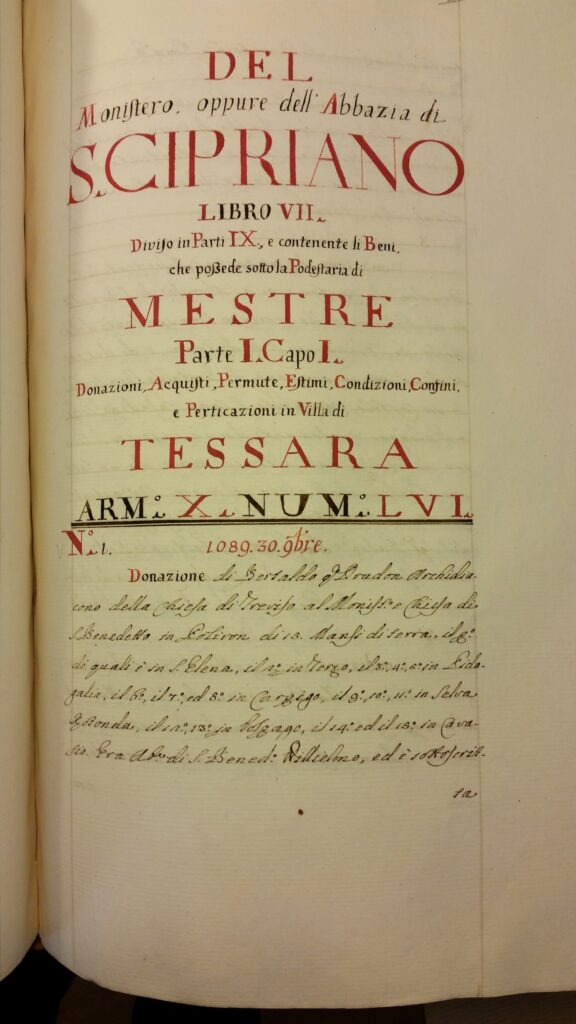 DEL
Moniſtero, oppure dell'Abbazia di
S. CIPRIANO
LIBRO VII.
Diviſo in Parti IX., e contenente li Beni,
che poßede sotto la Podeſtaria di
MESTRE
Parte I. Capo I.
Donazioni, Acquiſti, Permute, Eſtimi, Condizioni, Confini,
e Perticazioni in Villa di
TESSARA
ARM.º X. NUM.º LVI.
N.º 1. 1089. 30. 9bre.
Donazione di Bertaldo q. Drudon Archidia-
cono della Chieſa di Treviſo al Moniſt.º e Chieſa di
S. Benedetto in Poliron di 15. Manſi di terra, il p.º
di quali è in S. Elena, il 2.º in Terzo, il 3.º 4.º 5.º in
il 6.º, il 7.º, ed 8.º in Carzigo, il 9.º, 10.º, 11.º in Selva
Rotonda, il 12.º, 13.º in il 14.º ed il 15.º in Cava-
sco. Era Ab.º di S. Bened.º Willielmo, ed è sottoſcrit-
ta